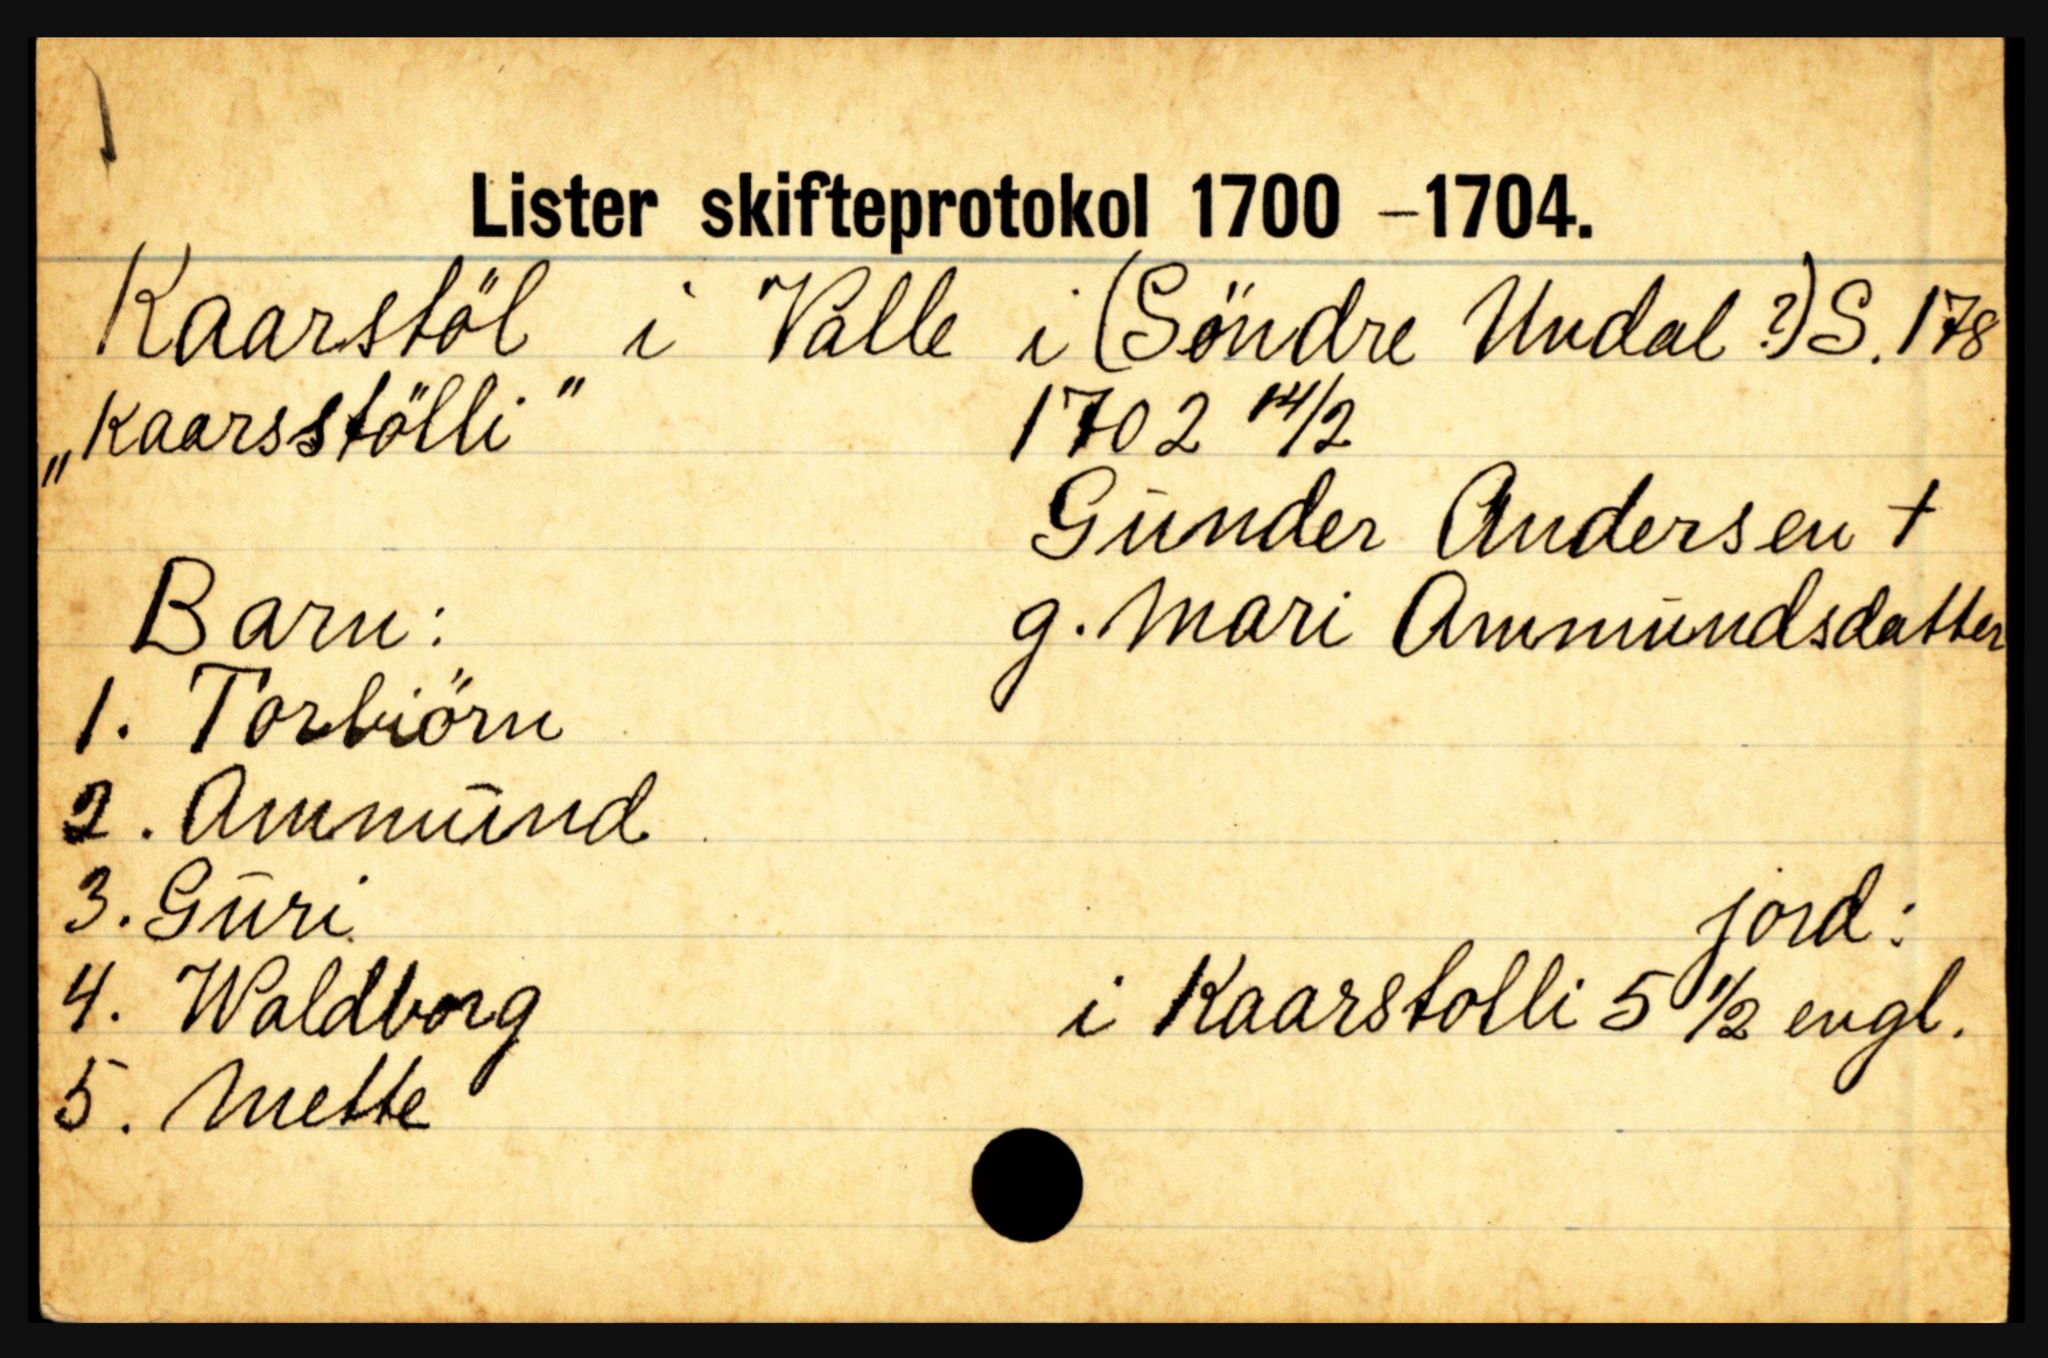 Lister skifteprotokol 1700 – 1704.
Kaarstöl i Valle i (Söndre Undal ?) S. 178
„Kaarsstölli" 1702 14/2
Gunder Andersen +
Barn: g. Mari Ammundsdatter
1. Torbiörn
2. Ammund
3. Guri jord:
4. Waldborg i Kaarstolli 5 1/2 engl.
5. Mette